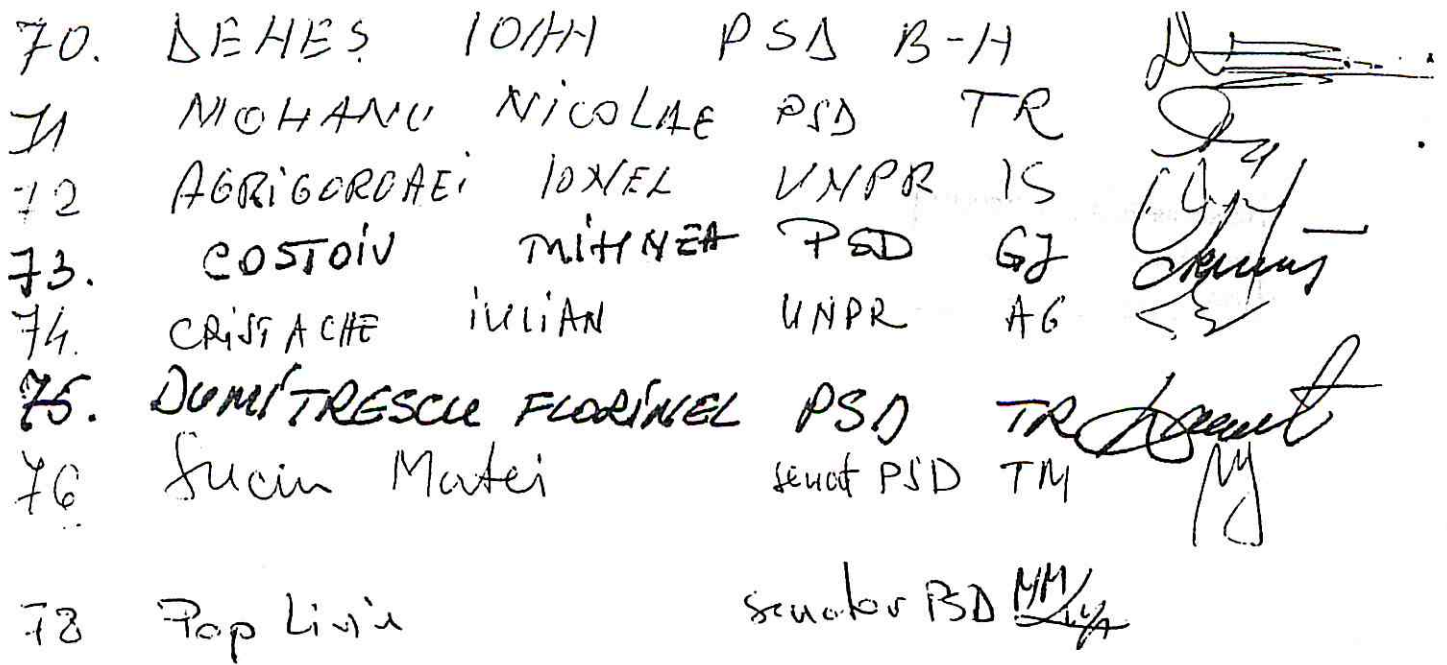 70. DEHEȘ IOAN PSD B-H
71 MOHANU NICOLAE PSD TR
72 AGRIGOROAEI IONEL UNPR IS
73. COSTOIU MIHNEA PSD GJ
74. CRISTACHE IULIAN UNPR AG
75. DUMITRESCU FLORINEL PSD TR
76 Suciu Matei senat PSD TM
78 Pop Liviu senator PSD MM